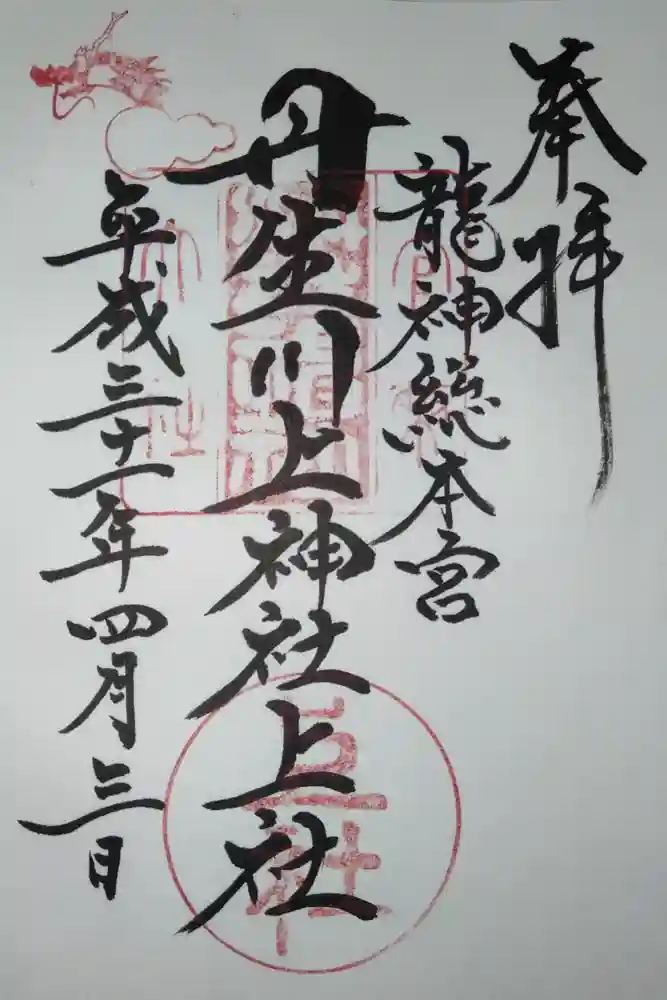 奉拝
龍神総本宮
丹生川上神社上社
平成三十一年四月三日